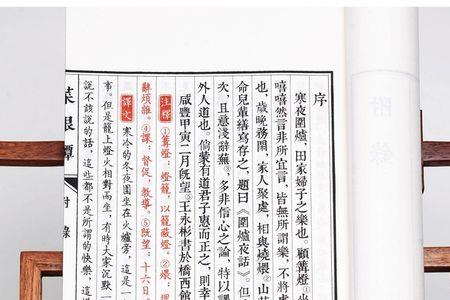 附錄
序
寒夜圍爐,田家婦子之樂也。顧篝燈①坐
嘻嘻然,言非所宜言,皆無所謂樂,不將
也,歲晚務閑,家人聚處,相與燒煨②山
命兒輩繕寫存之,題曰《圍爐夜話》。但
次,且意淺辭蕪③,多非信心之論,特以
外人道也。倘蒙有道君子惠而正之,則幸
咸豐甲寅二月既望⑤,王永彬書於橋西館
注釋 ①篝燈:燈籠,以籠蔽燈。②煨:
辭煩雜。④課:督促,教導。⑤既望:十六日
譯文 寒冷的冬夜圍坐在火爐旁,這是
事。但是籠上燈火相對而坐,有時大家沉默
說不該說的話,這些都不是所謂的快樂,這
菜根譚 附錄